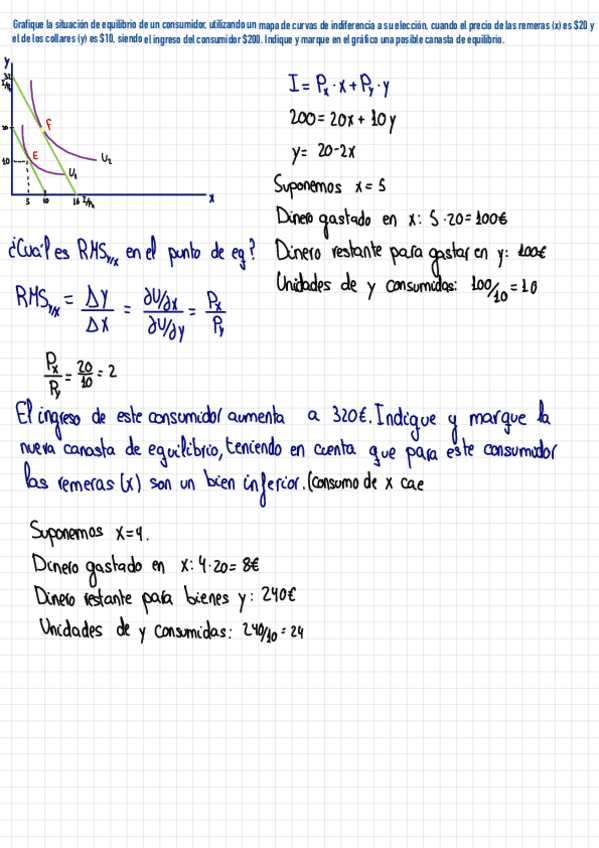 Grafique la situación de equilibrio de un consumidor, utilizando un mapa de curvas de indiferencia a su elección, cuando el precio de las remeras (x) es $20 y
el de los collares (y) es $10, siendo el ingreso del consumidor $200. Indique y marque en el gráfico una posible canasta de equilibrio.
y
32
I/Py
20
10
F
E
U2
U1
5 10 16 I/Px
x
I = Px · x + Py · y
200 = 20x + 10y
y = 20-2x
Suponemos x = 5
Dinero gastado en x: 5 · 20 = 100€
¿Cuál es RMS y/x en el punto de eq?
Dinero restante para gastar en y: 100€
Unidades de y consumidas: 100/10 = 10
RMS y/x = Δy/Δx = ∂U/∂x / ∂U/∂y = Px/Py
Px/Py = 20/10 = 2
El ingreso de este consumidor aumenta a 320€. Indique y marque la
nueva canasta de equilibrio, teniendo en cuenta que para este consumidor
las remeras (x) son un bien inferior. (consumo de x cae
Suponemos x=4.
Dinero gastado en x: 4·20 = 8€
Dinero restante para bienes y: 240€
Unidades de y consumidas: 240/10 = 24